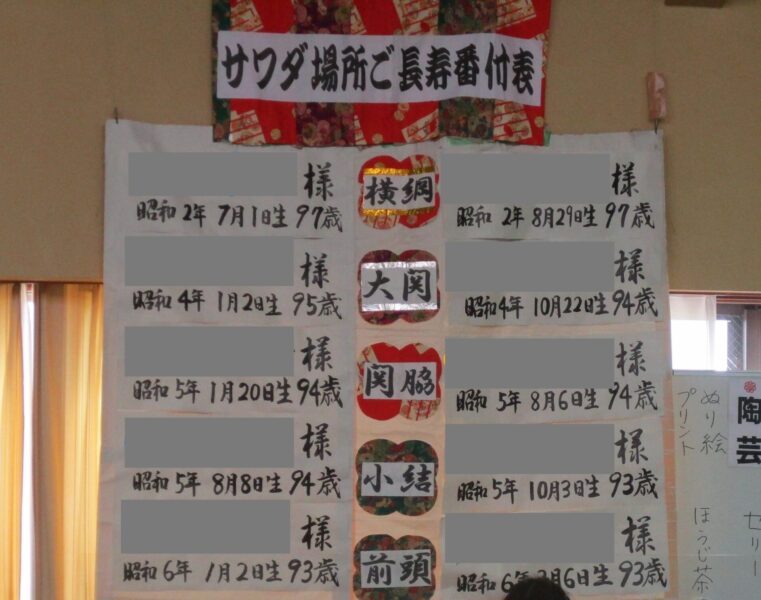 サワダ場所ご長寿番付表
様
昭和2年 7月1日生 97歳
横綱
様
昭和 2年 8月29日生 97歳
様
昭和4年 1月2日生 95歳
大関
様
昭和4年 10月22日生 94歳
様
昭和5年 1月20日生 94歳
関脇
様
昭和 5年 8月6日生 94歳
様
昭和5年 8月8日生 94歳
小結
様
昭和5年 10月3日生 93歳
様
昭和6年 1月2日生 93歳
前頭
様
月6日生 93歳
陶芸
ぬり絵
プリント
ゼリー
ほうじ茶